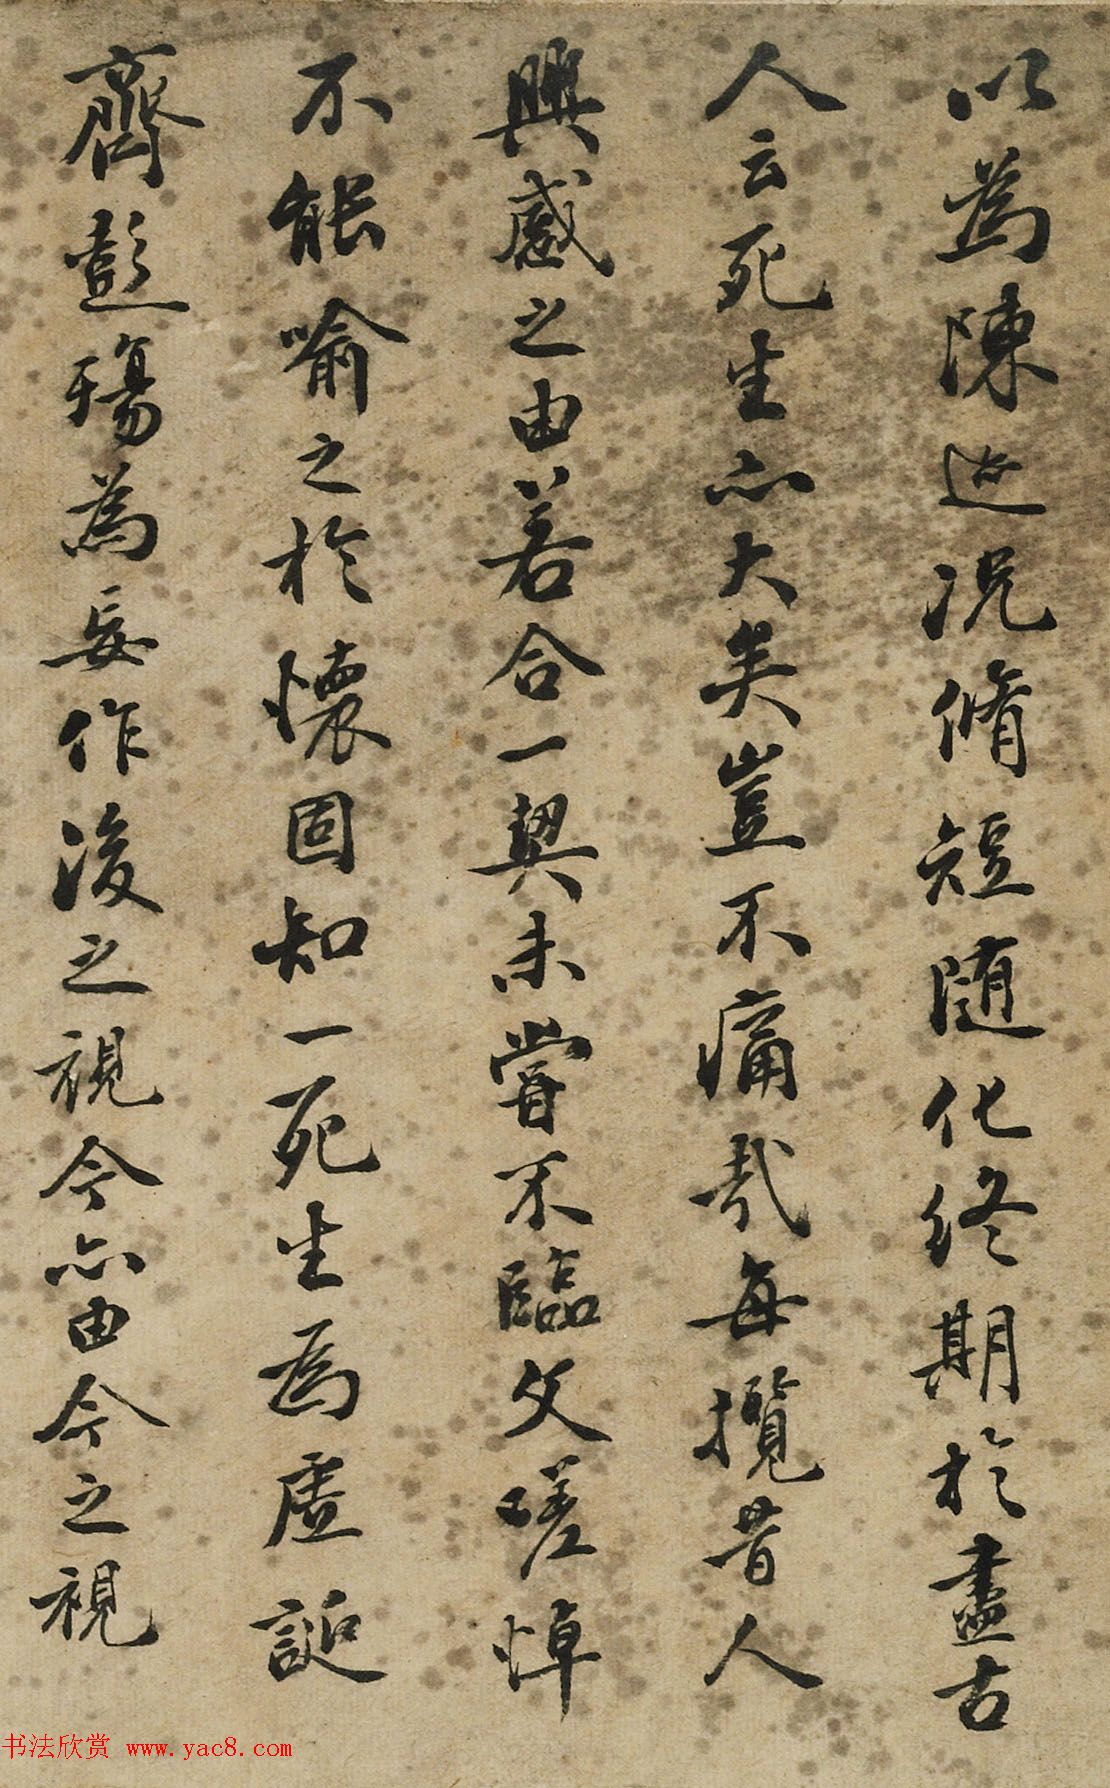 以為陳迹况脩短随化終期於盡古
人云死生亦大矣豈不痛哉每攬昔人
興感之由若合一契未嘗不臨文嗟悼
不能喻之於懷固知一死生為虛誕
齊彭殤為妄作後之視今亦由今之視
书法欣赏 www.yac8.com